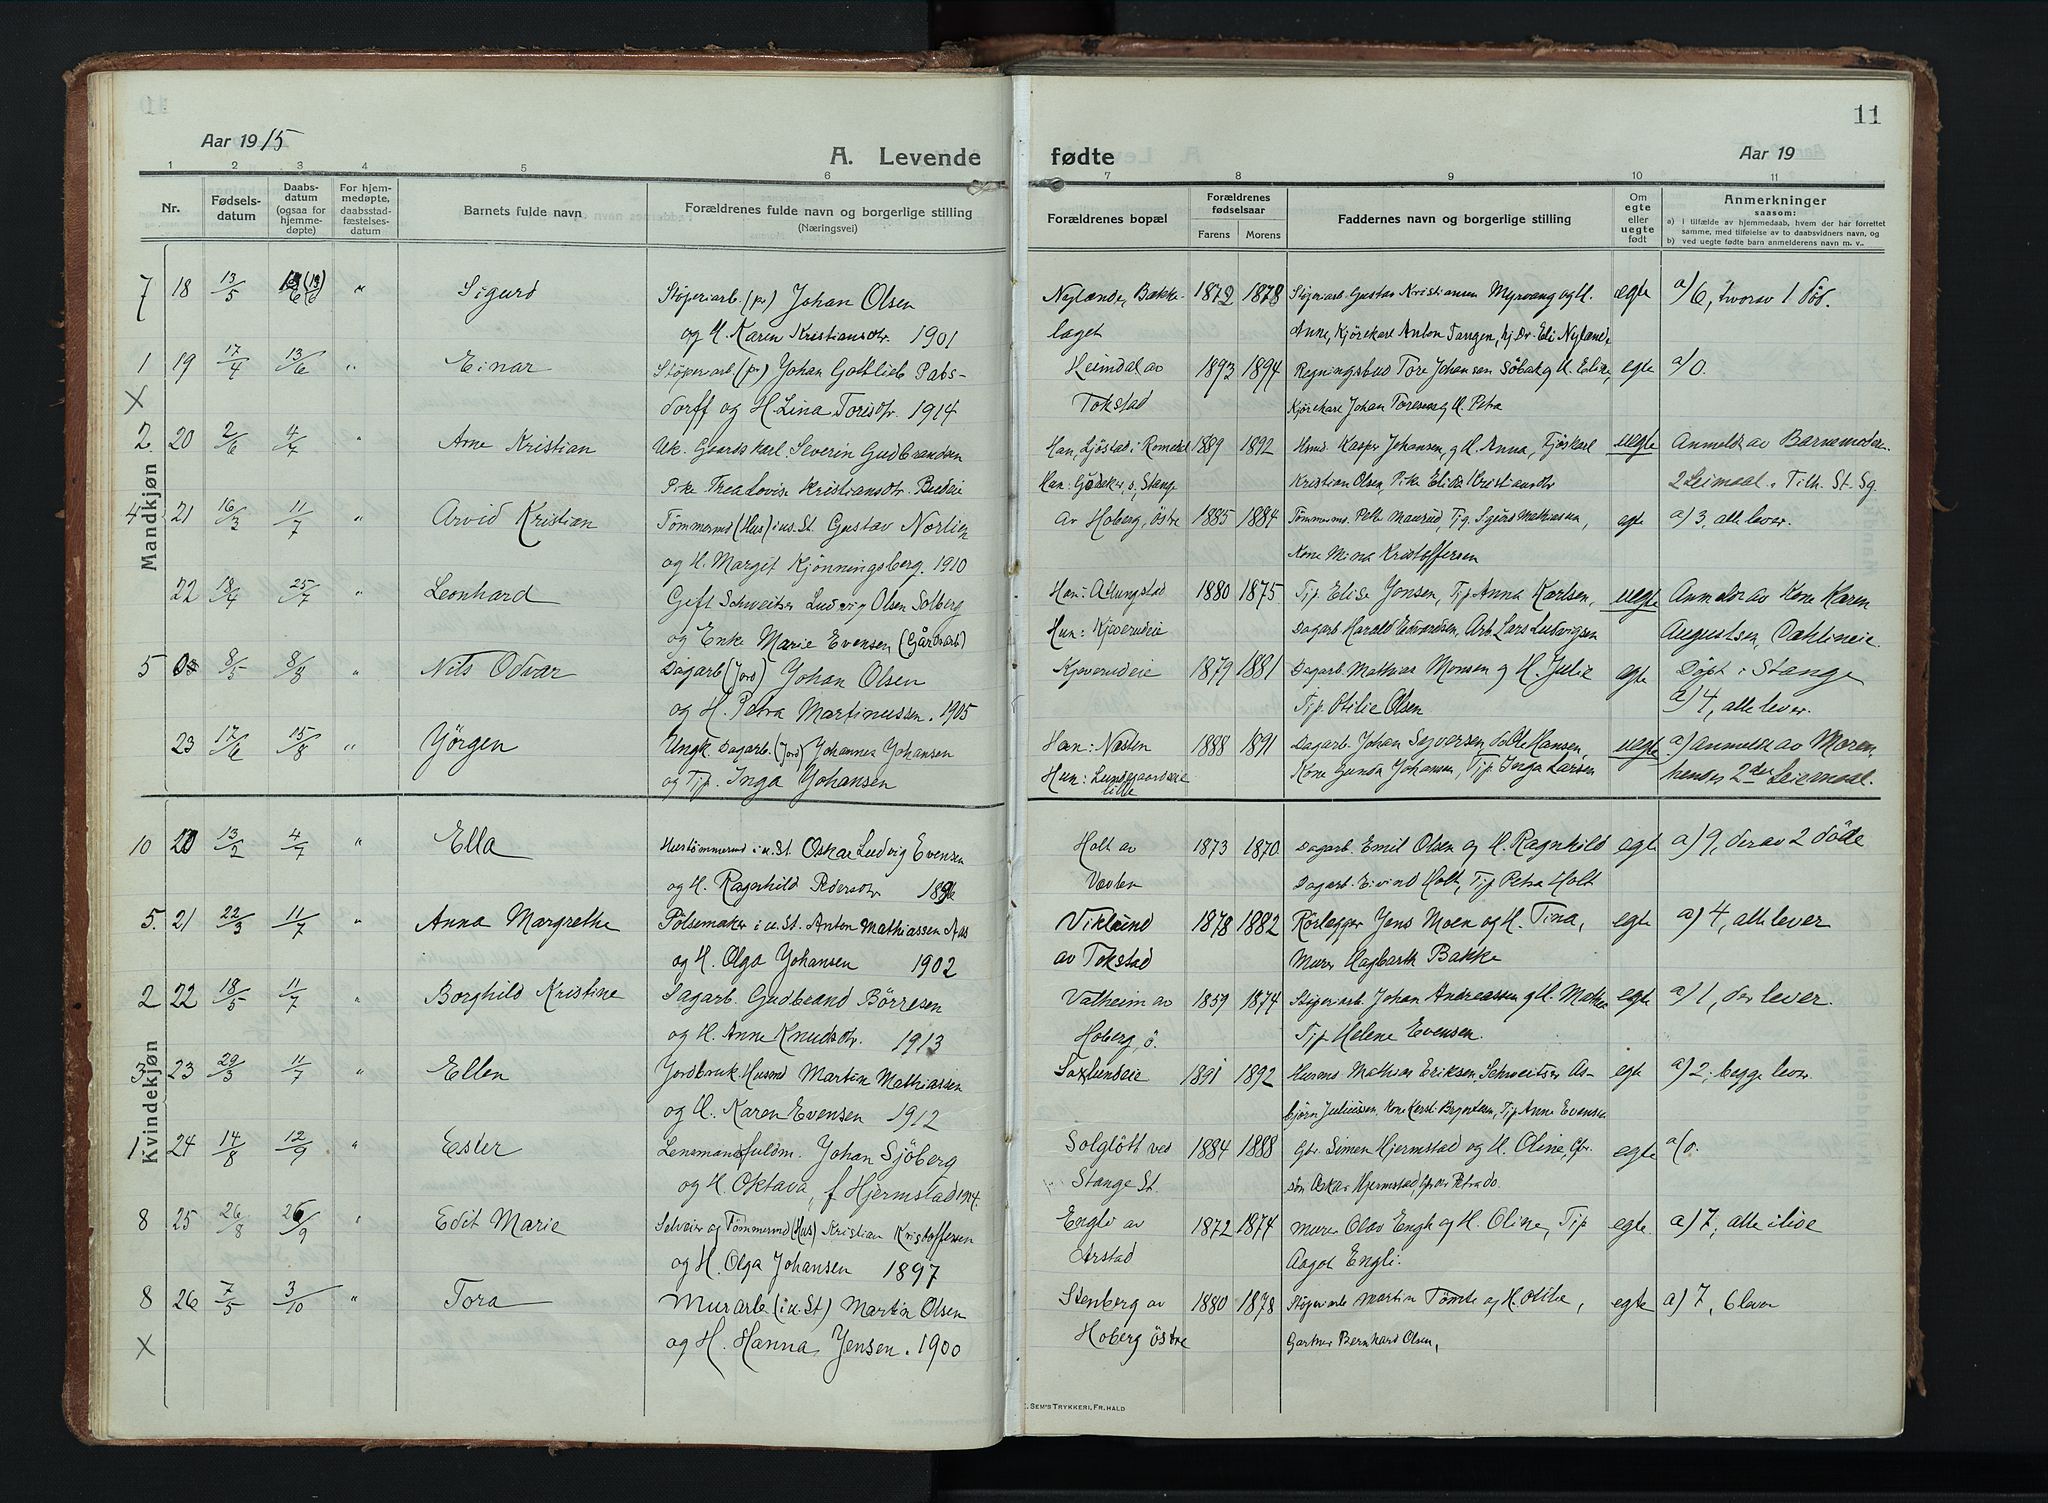 11
Aar 1915
A. Levende fødte
Aar 19
1 2 3 4 5 6 7 8 9 10 11
Nr.
Fødsels-
datum
Daabs-
datum
(ogsaa for
hjemme-
døpte)
For hjem-
medøpte,
daabsstad-
fæstelses-
datum
Barnets fulde navn
Forældrenes fulde navn og borgerlige stilling
(Næringsvei)
Forældrenes bopæl
Forældrenes
fødselsaar
Farens Morens
Faddernes navn og borgerlige stilling
Om
egte
eller
uegte
født
Anmerkninger
saasom:
a) I tilfælde av hjemmedaab, hvem der har forrettet
samme, med tilføielse av to daabsvidners navn, og
b) ved uegte fødte barn anmelderens navn m. v..
Mandkjøn
7 18 13/5 " Sigurd Støperiarb. (pr) Johan Olsen Nylænde, Bakke- 1872 1878 Støperiarb. Gustav Kristiansen Myrvang og H. egte a) 6, hvorav 1 död.
og H. Karen Kristiansdtr. 1901 laget Anne, Kjörekarl Anton Tangen, Eli Nylænde
1 19 17/4 13/6 " Einar Støperiarb (pr) Johan Gottlieb Pabs- Heimdal av 1893 1894 Regningsbud Tore Johansen Söbak og H. Eline, egte a) 0.
X dorff og H. Lina Torisdtr. 1914 Tokstad Kjörekarl Johan Toresen og H. Petra
2. 20 2/6 4/7 " Arne Kristian Uk. Gaardskarl Severin Gudbrandsen Han, Ljöstad i Romedal 1889 1892 Hmd. Kasper Johansen, og H. Anna, Fjöskarl uegte Anmeldt av Barnemoder
Pike Thea Lovise Kristiansdtr. Budeie Stange Kristian Olsen, Pike Elida Kristiansdtr 2 Leimaal. Tilh. St. Sg.
4 21 16/3 11/7 " Arvid Kristian Tömmermd (Hus) i u. St. Gustav Nörlien Av Hoberg, östre 1885 1884 Tömmermd. Petter Maurud, Tjg. Sigurd Mathiassen, egte a) 3, alle lever.
og H. Margit Kjönningsberg. 1910 Kone Mina Kristoffersen
22 18/4 25/7 " Leonhard Gift Schweitser Ludvig Olsen Solberg Han: Adlungstad 1880 1875 Tjp. Elise Jonsen, Tjp Anna Karlsen, uegte Anmeldt av Kone Karen
og Enke Marie Evensen (Gårdarb) Hun: Kjæverudeie Dagarb Harald Edvardsen, Arb. Lars Ludvigsen Augustsen, Dahlineie.
5 8/5 8/8 " Nils Odvar Dagarb (Jord) Johan Olsen Kjæverudeie 1879 1881 Dagarb. Mathias Monsen og H. Julie egte Döpt i Stange
og H. Petra Martinussen. 1905 Tjp. Otilie Olsen a) 4, alle lever.
23 17/6 15/8 " Jörgen Ungk. Dagarb. (Jord) Johannes Johansen Han: Næsten 1888 1891 Dagarb. Johan Syversen, Hansen, uegte a) anmeldt av Moren
og Tjp. Inga Johansen Hun: Lundegaardseie lille Kone Gunda Johansen, Tjp. Inga Larsen hendes 2det Leiermaal.
Kvindekjøn
10 20 13/2 4/7 " Ella Hustömmermd i u. St. Oskar Ludvig Evensen Holt av 1873 1870 Dagarb. Emil Olsen og H. Ragnhild egte a) 9, derav 2 döde
og H. Ragnhild Pedersdtr 1896 Vævlen Dagarb. Eivind Holt, Tjp Petra Holt
5. 21 22/3 11/7 " Anna Margrethe Pölsemaker i u. St. Anton Mathiassen Aas Viklund 1878 1882 Rörlegger Jens Moen og H. Tina, egte a) 4, alle lever
og H. Olga Johansen 1902 av Tokstad Murer Hagbarth Bakke
2 22 18/5 11/7 " Borghild Kristine Dagarb. Gudbrand Börresen Valheim av 1859 1874 Johan Andreassen og H. Mathea egte a) 1, der lever.
og H. Anne Knudsdtr. 1913 Hoberg, ö. Tjp Helene Evensen.
3 23 29/3 11/7 " Ellen Jordbruk. Husmd Martin Mathiassen Saxlundeie 1891 1892 Husmd Mathias Eriksen, Schweitser As- egte a) 2, begge lever.
og H. Karen Evensen 1912 björn Juliussen, Kone Kersti Bryntesen, Tjp Anne Evensen
1. 24 14/8 12/9 " Ester Lensmandsfuldm. Johan Sjöberg Solglött ved 1884 1888 Gbr. Simen Hjermstad og H. Oline, Gbr. egte a) 0.
og H. Oktava, f Hjermstad 1914. Stange St. sön Oskar Hjermstad, Gbr dtr Petra do.
8 25 26/8 26/9 " Edit Marie Selveier og Tömmermd (Hus) Kristian Kristoffersen Engli av 1872 1874 Murer Olav Engli og H. Oline, Tjp egte. a) 7, alle ilive
og H. Olga Johansen 1897 Arstad Aagot Engli.
8 26 7/5 3/10 " Tora Murarb (i u. St) Martin Olsen Stenberg av 1880 1878 Støperiarb Martin Tömte og H. Otilie, egte a) 7, 6 lever
X og H. Hanna Jensen. 1900 Hoberg östre Gartner Bernhard Olsen,
E. SEM'S TRYKKERI, FR. HALD